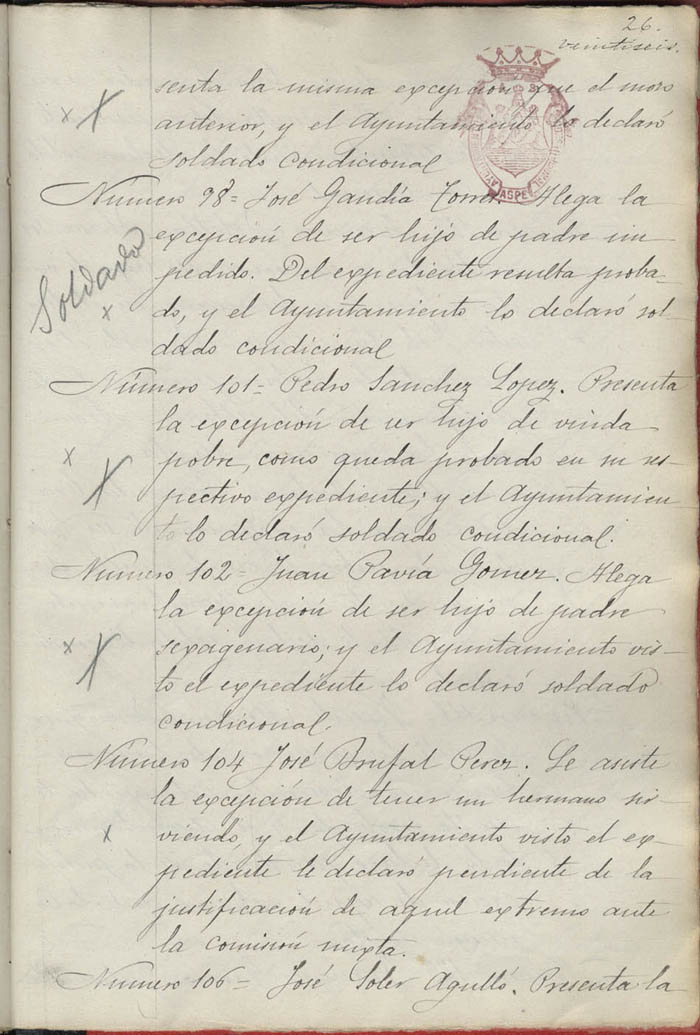 26.
veintiseis.
senta la misma excepción que el mozo
anterior, y el Ayuntamiento lo declaró
soldado condicional
ASPE
Número 98= José Gandía Torres Alega la
excepción de ser hijo de padre im
pedido. Del expediente resulta proba-
do, y el Ayuntamiento lo declaró sol
dado condicional
Soldado
Número 101= Pedro Sanchez Lopez. Presenta
la excepción de ser hijo de viuda
pobre, como queda probado en su res-
pectivo expediente; y el Ayuntamien-
to lo declaró soldado condicional.
Número 102= Juan Pavía Gomez. Alega
la excepción de ser hijo de padre
sexagenario; y el Ayuntamiento vis-
to el expediente lo declaró soldado
condicional.
Número 104 José Brufal Perez. Le asiste
la excepción de tener un hermano sir
viendo, y el Ayuntamiento visto el ex-
pediente le declaró pendiente de la
justificación de aquel extremo ante
la comisión mixta.
Número 106= José Soler Agulló. Presenta la